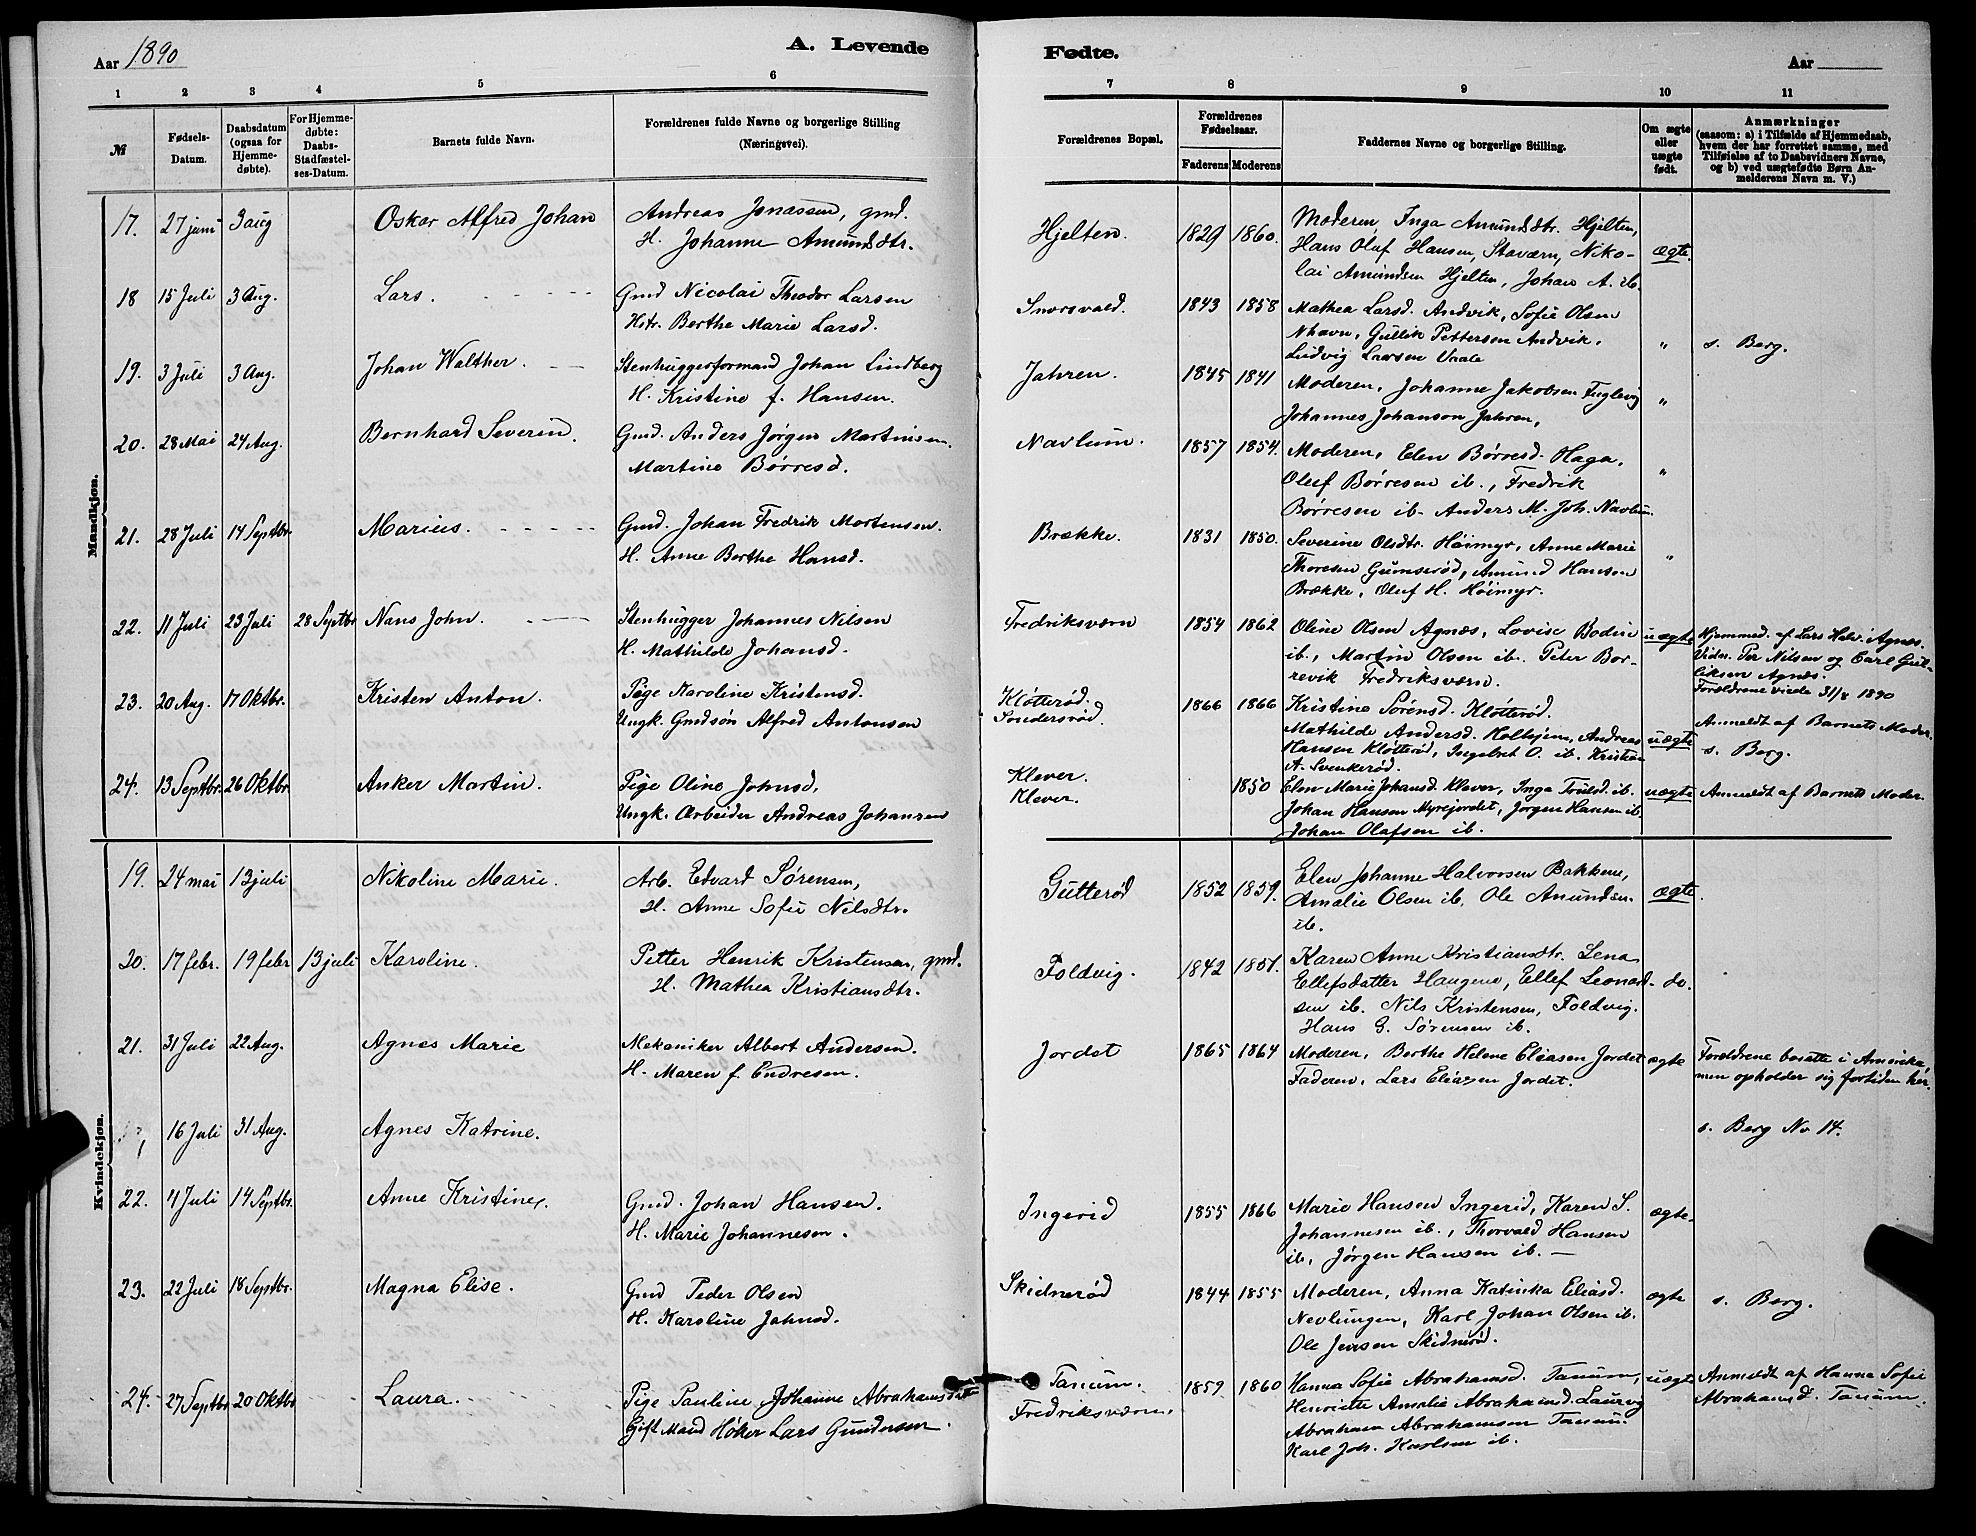 Aar 1890
A. Levende
Fødte.
Aar
1 2 3 4 5 6 7 8 9 10 11
№
Fødsels-
Datum.
Daabsdatum
(ogsaa for
Hjemme-
døbte).
For Hjemme-
døbte:
Daabs-
Stadfæstel-
ses-Datum.
Barnets fulde Navn.
Forældrenes fulde Navne og borgerlige Stilling
(Næringsvei).
Forældrenes Bopæl.
Forældrenes
Fødselsaar.
Faderens Moderens
Faddernes Navne og borgerlige Stilling.
Om ægte
eller
uægte
født.
Anmærkninger
(saasom: a) i Tilfælde af Hjemmedaab,
hvem der har forrettet samme, med
Tilføielse af to Daabsvidners Navne,
og b) ved uægtefødte Børn An-
melderens Navn m. V.)
Mandkjøn.
17. 27 juni 3 aug Oskar Alfred Johan
Andreas Jonassen, gmd.
H. Johanne Amundsdtr.
Hjelten. 1829 1860.
Moderen, Inga Amundsdtr. Hjelten,
Hans Olaf Hansen, Staværn, Niko-
lai Amundsen Hjelten, Johan A. ib.
ægte.
18 15 Juli 3 Aug. Lars.
Gmd Nicolai Theodor Larsen
Hstr. Berthe Marie Larsd.
Snørsvald. 1843 1858
Mathea Larsd. Andvik, Sofie Olsen
Nhavn, Gullik Pettersen Andvik,
Ludvig Larsen Vaale
" s. Berg.
19. 3 Juli 3 Aug. Johan Walther.
Stenhuggerformand Johan Lindberg
H. Kristine f. Hansen.
Jahren. 1845 1841
Moderen, Johanne Jakobsen Fuglevig
Johannes Johanson Jahren,
"
20. 28 Mai 24 Aug. Bernhard Severin.
Gmd. Anders Jørgen Martinsen.
Martine Børresd.
Navlum. 1857 1854.
Moderen, Elen Børresd. Haga,
Oluf Børresen ib., Fredrik
Børresen ib. Anders M. Joh. Navlum.
"
21. 28 Juli 14 Septbr. Marius.
Gmd. Johan Fredrik Mortensen.
H. Anne Berthe Hansd.
Brække. 1831 1850.
Severine Olsdtr. Høimyr, Anne Marie
Thoresen Gumserød, Amund Hansen
Brække, Oluf H. Høimyr.
"
22. 11 Juli 23 Juli 28 Septbr Nans John.
Stenhugger Johannes Nilsen
H. Mathilde Johansd.
Fredriksværn 1854 1862
Oline Olsen Agnæs, Lovise Bodin
ib., Martin Olsen ib. Peter Bor-
revik Fredriksværn.
uægte
Hjemmed. af Lars Halv. Agnæs.
Vidn. Per Nilsen og Carl Gul-
liksen Agnæs.
Forældrene viede 31/8 1890
23. 20 Aug. 17 Oktbr. Kristen Anton.
Pige Karoline Kristensd.
Ungk. Gmdsøn Alfred Antonsen
Kløtterød.
Søndersrød. 1866 1866
Kristine Sørensd. Kløtterød.
Mathilde Andersd. Holhjem, Andreas
Hansen Kløtterød, Ingebret O. ib. Kristian
A. Svenkerød.
uægte
Anmeldt af Barnets Moder.
s. Berg.
24. 13 Septbr. 26 Oktbr Anker Martin.
Pige Oline Johnsd,
Ungk. Arbeider Andreas Johansen
Klever.
Klever. 1850
Elen Marie Johansd. Klever, Inga Trulsd. ib.
Johan Hansen Myrejordet, Jørgen Hansen ib.
Johan Olafsen ib.
uægte
Anmeldt af Barnets Moder.
Kvindekjøn.
19. 24 mai 13 juli Nikoline Marie.
Arb. Edvard Sørensen,
H. Anne Sofie Nilsdtr.
Gutterød 1852 1859.
Elen Johanne Halvorsen Bakkene,
Amalie Olsen ib. Ole Amundsen
ib.
ægte.
20. 17 febr. 19 febr 13 juli Karoline.
Petter Henrik Kristensen, gmd.
H. Mathea Kristiansdtr.
Foldvig. 1842 1851.
Karen Anne Kristiansdtr. Lena
Ellefsdatter Haugene, Ellef Leonard-
sen ib. Nils Kristensen, Foldvig.
Hans G. Sørensen ib.
do.
21. 31 Juli 22 Aug. Agnes Marie
Mekaniker Albert Andersen.
H. Maren f. Endresen.
Jordet 1865 1864
Moderen, Berthe Helene Eliasen Jordet
Faderen, Lars Eliasen Jordet.
ægte
Forældrene bosatte i Amerika,
men opholder sig fortiden her.
16 Juli 31 Aug. Agnes Katrine.
s. Berg No 14.
22. 4 Juli 14 Septbr. Anne Kristine.
Gmd. Johan Hansen.
H. Marie Johannesen.
Ingerid 1855 1866
Marie Hansen Ingerid, Karen S.
Johannesen ib., Thorvald Hansen
ib, Jørgen Hansen ib. —
ægte.
23. 22 Juli 18 Septbr. Magna Elise.
Gmd Peder Olsen
H. Karoline Johnsd.
Skidnerød 1844 1855
Moderen, Anna Katinka Eliasd.
Nevlungen, Karl Johan Olsen ib.
Ole Jensen Skidnerød.
ægte
s. Berg.
24. 27 Septbr 20 Oktbr Laura.
Pige Pauline Johanne Abrahamsdatt
Gift Mand Høker Lars Gundersen.
Tanum.
Fredriksværn. 1859 1860
Hanna Sofie Abrahamsd. Tanum,
Henriette Amalie Abrahamsd. Laurvig
Abraham Abrahamsen Tanum.
Karl Joh. Karlsen ib.
uægte
Anmeldt af Hanna Sofie
Abrahamsd. Tanum.